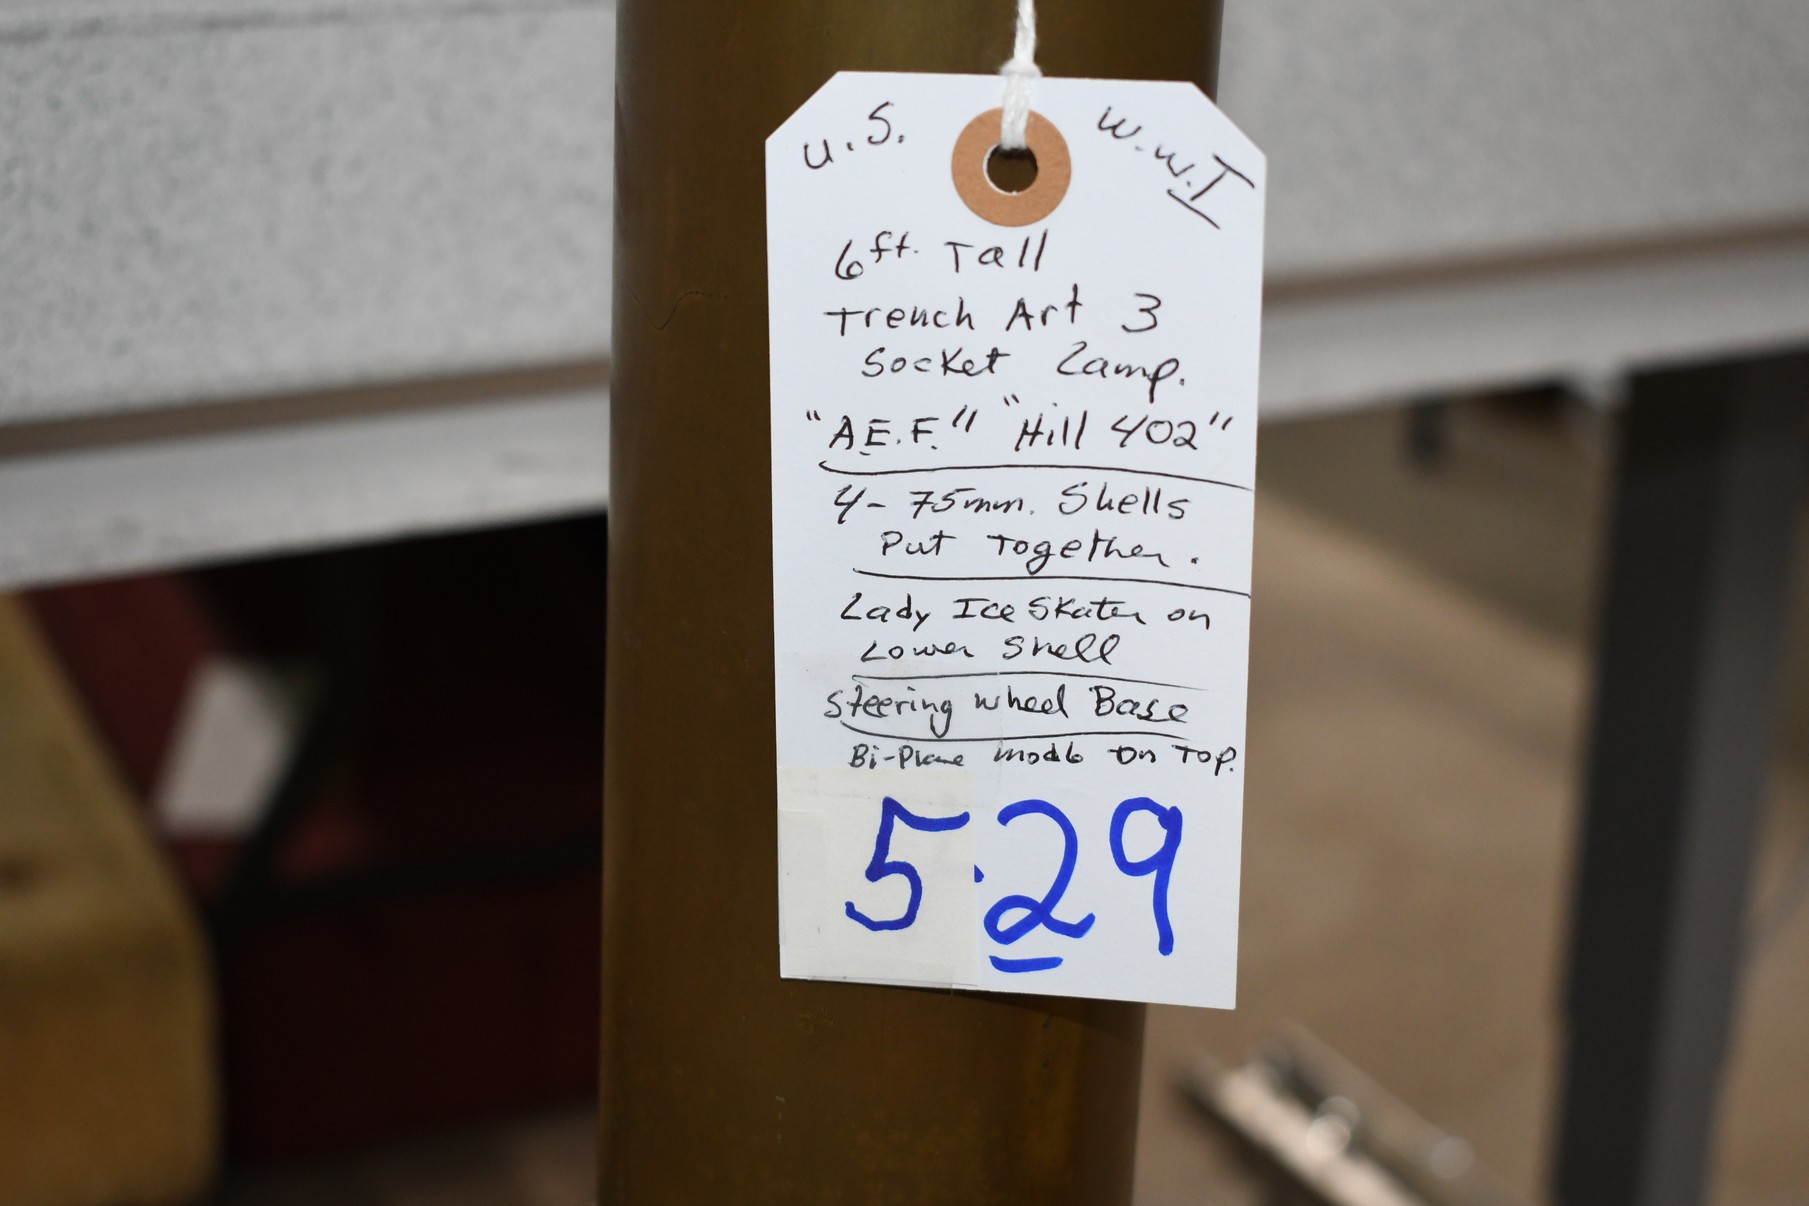 U.S.
W.W.I
6 ft. Tall
Trench Art 3
Socket Lamp.
"A.E.F." "Hill 402"
4- 75mm. Shells
Put Together.
Lady Ice Skater on
Lower Shell
Steering Wheel Base
Bi-Plane on Top.
5.29